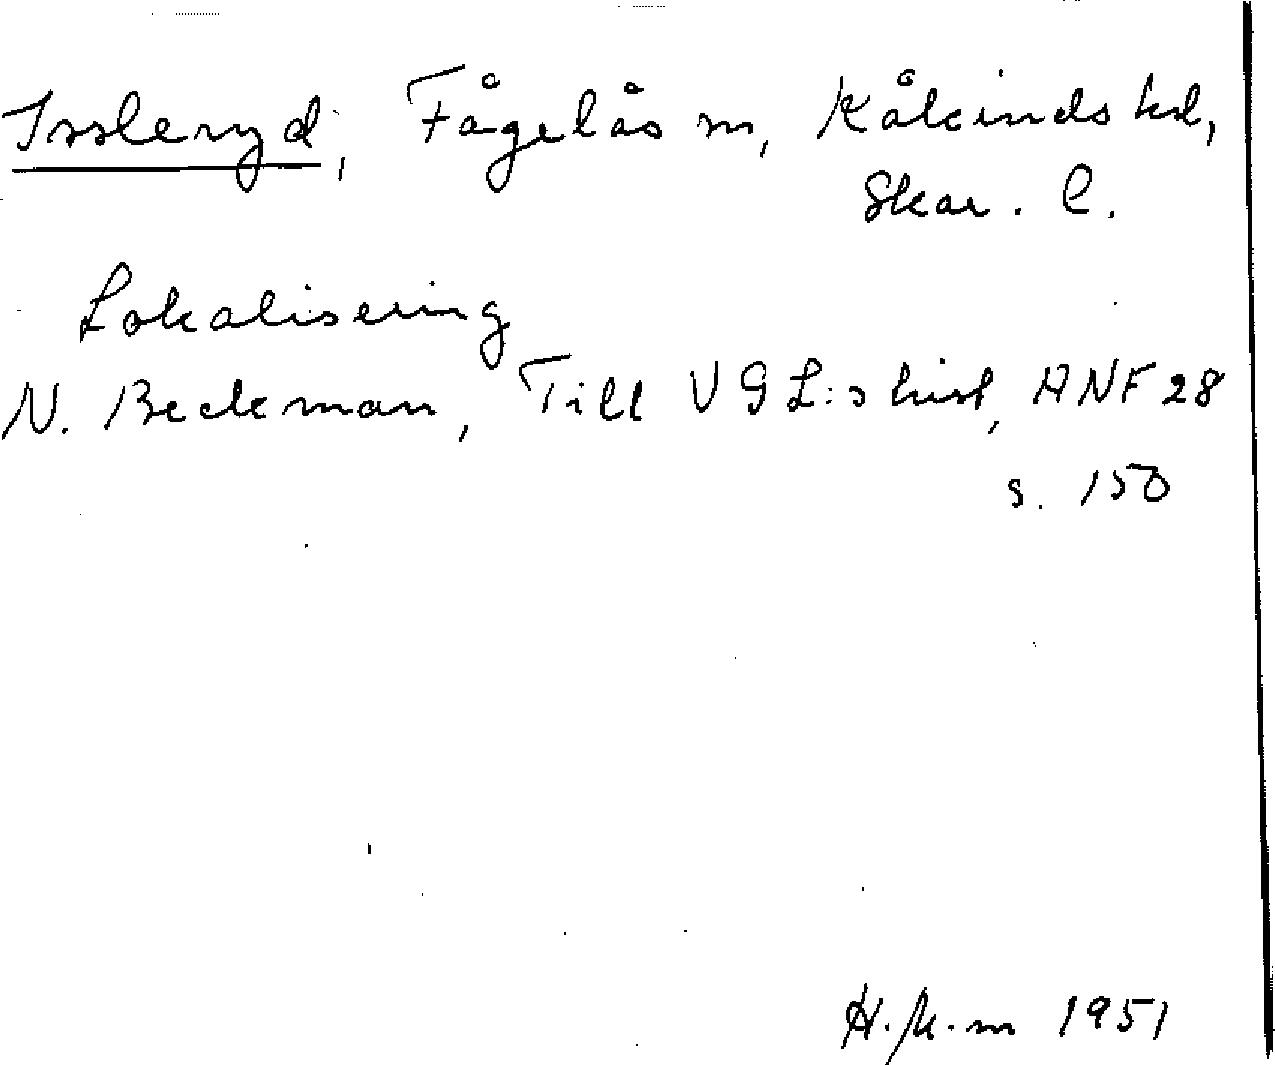 Issleryd, Fågelås sn, Kåkinds hd,
Skar. l.
Lokalisering
N. Beckman, Till VGL:s hist, ANF 28
s. 150
1951